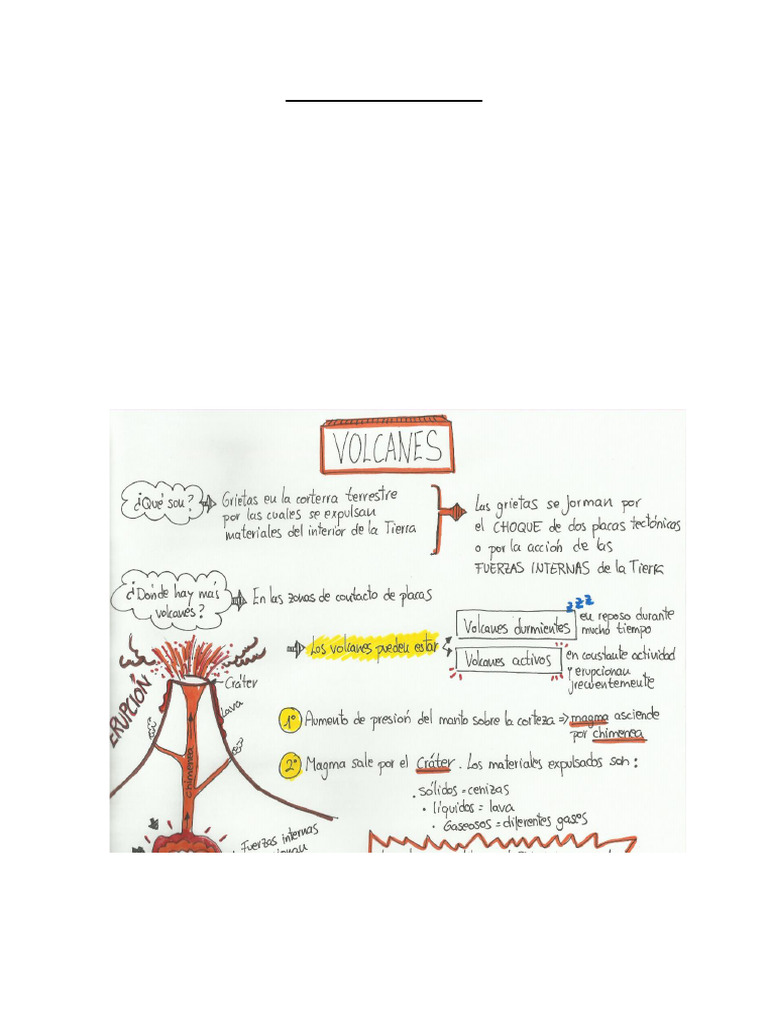 VOLCANES
¿Qué son?
Grietas en la corterra terrestre
por las cuales se expulsan
materiales del interior de la Tierra
Las grietas se forman por
el CHOQUE de dos placas tectónicas
o por la acción de las
FUERZAS INTERNAS de la Tierra
¿Dónde hay más
volcanes?
En las zonas de contacto de placas
Los volcanes pueden estar
zzz
Volcanes durmientes
en reposo durante
mucho tiempo
Volcanes activos
en constante actividad
y erupcionan
frecuentemente
ERUPCIÓN
Cráter
lava
chimenea
1º Aumento de presión del manto sobre la corteza => magma asciende
por chimenea
2º Magma sale por el Cráter. Los materiales expulsados son:
· sólidos = cenizas
· líquidos = lava
· Gaseosos = diferentes gases
Fuerzas internas